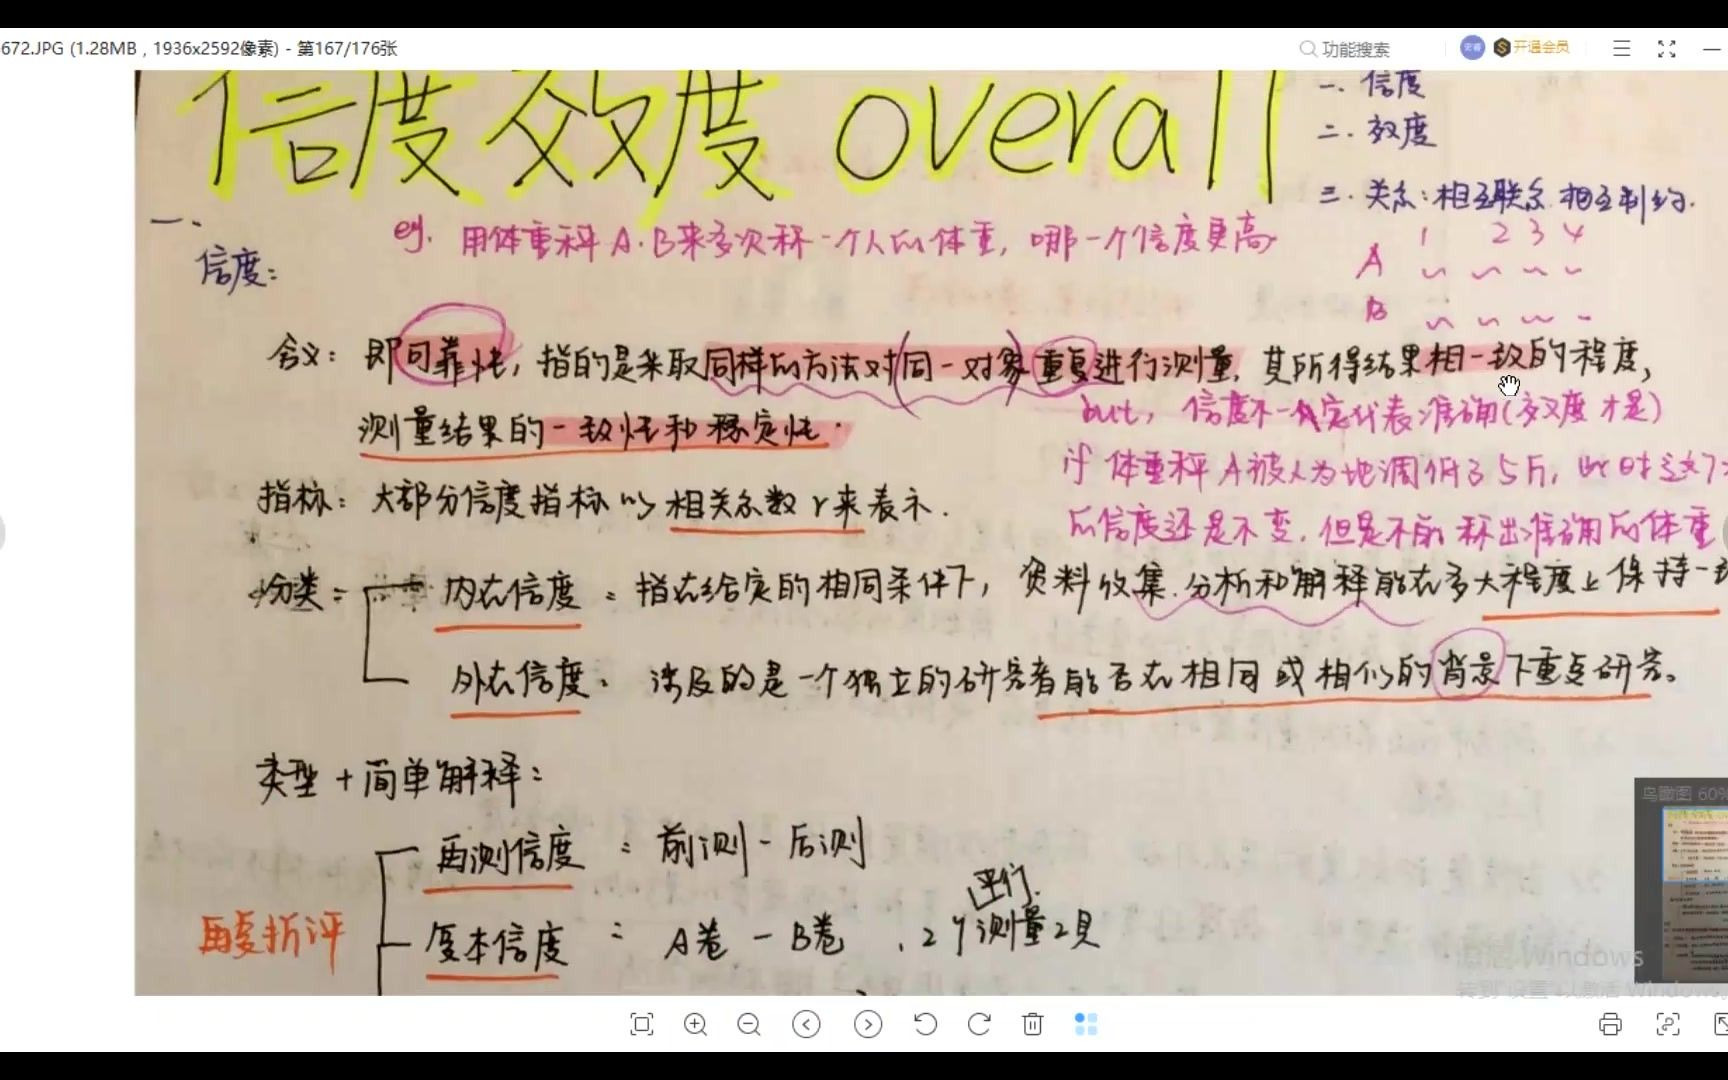 672.JPG (1.28MB , 1936x2592像素) - 第167/176张
功能搜索
开通会员
信度效度 overall
一. 信度
二. 效度
三. 关系: 相互联系 相互制约.
一.
信度:
eg. 用体重秤 A.B来多次称一个人的体重, 哪一个信度更高
1 2 3 4
A
B
含义: 即可靠性, 指的是采取同样的方法对同一对象重复进行测量, 其所得结果相一致的程度,
测量结果的一致性和稳定性.
but, 信度不一定代表准确(效度才是)
if 体重秤 A被人为地调低了5斤, 此时这个
的信度还是不变, 但是不能称出准确的体重
指标: 大部分信度指标以相关系数r来表示.
分类: 内在信度: 指在给定的相同条件下, 资料收集.分析和解释能在多大程度上保持一致
外在信度: 涉及的是一个独立的研究者能否在相同或相似的背景下重复研究。
类型+简单解释:
再测信度: 前测-后测
再复折评
复本信度: A卷-B卷, 2个平行测量工具
鸟瞰图 60%
激活 Windows
转到"设置"以激活 Windows